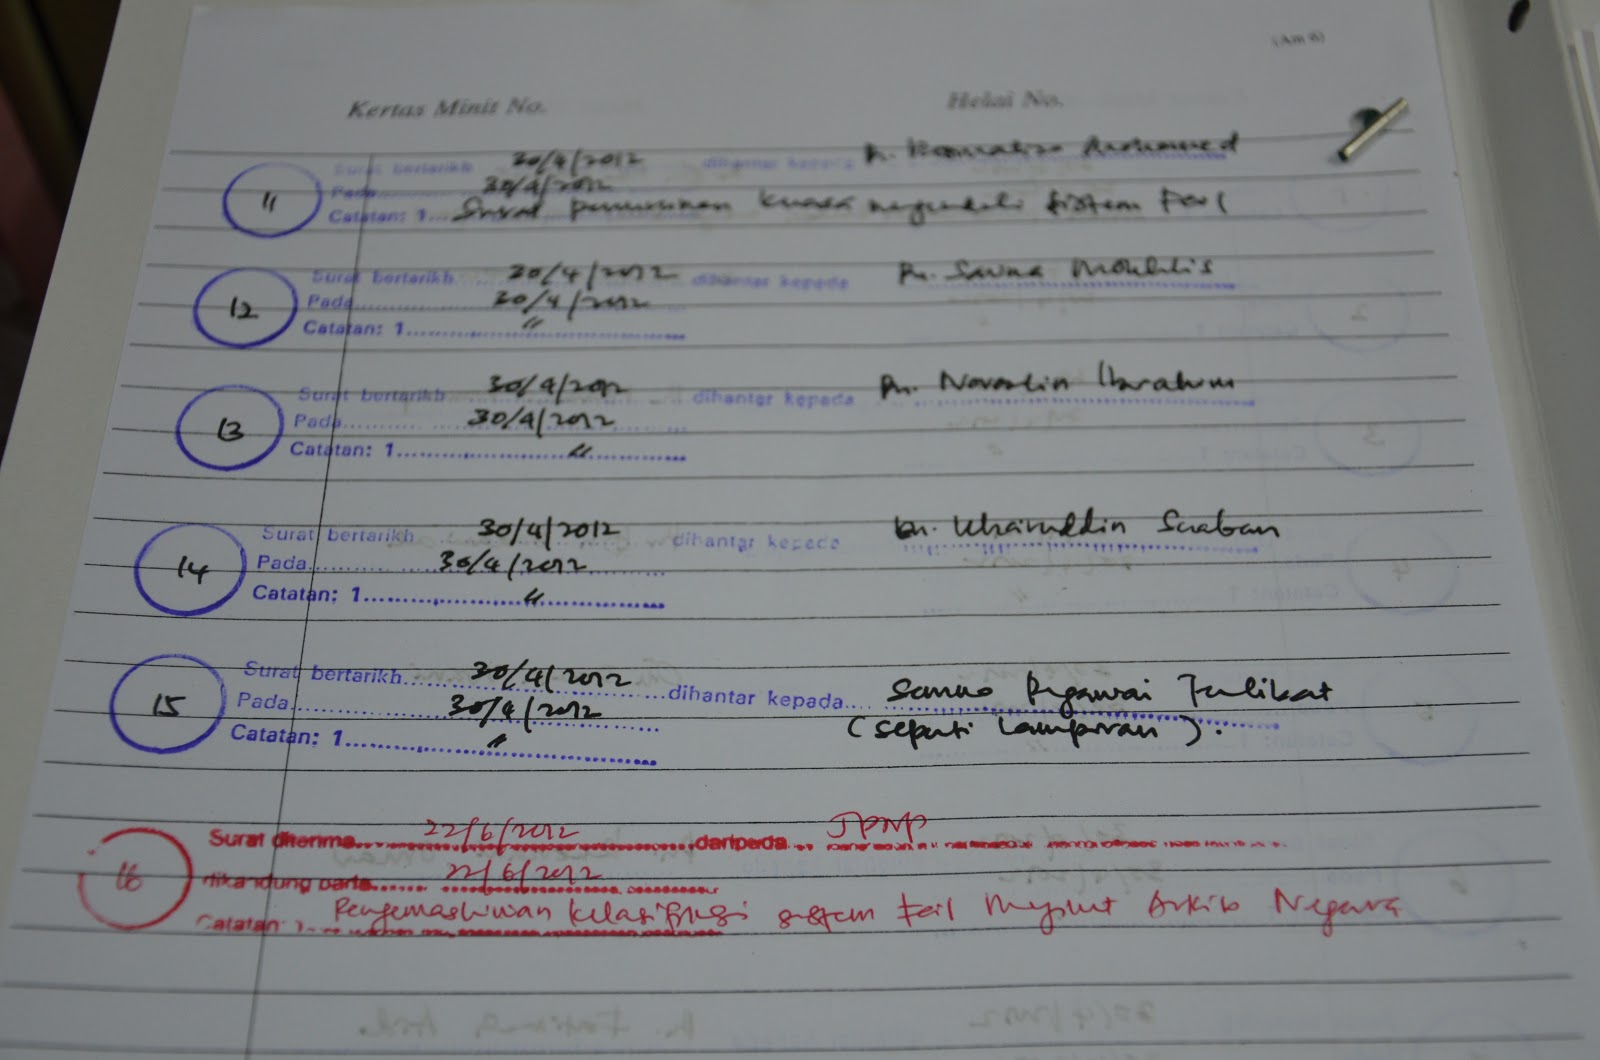 (Am 6)
Kertas Minit No. Helai No.
11 Surat bertarikh 30/4/2012 dihantar kepada
Pada 30/4/2012
Catatan: 1 Surat penurunan kuasa sistem
12 Surat bertarikh 30/4/2012 dihantar kepada Pn.
Pada 30/4/2012
Catatan: 1 "
13 Surat bertarikh 30/4/2012 dihantar kepada Pn. Ibrahim
Pada 30/4/2012
Catatan: 1 "
14 Surat bertarikh 30/4/2012 dihantar kepada En. Khairuddin
Pada 30/4/2012
Catatan: 1 "
15 Surat bertarikh 30/4/2012 dihantar kepada Semua Pegawai
Pada 30/4/2012 (seperti lampiran).
Catatan: 1 "
16 Surat diterima 22/6/2012 daripada
dikandung pada 22/6/2012
Catatan 1 Pengemaskinian klasifikasi sistem fail Arkib Negara